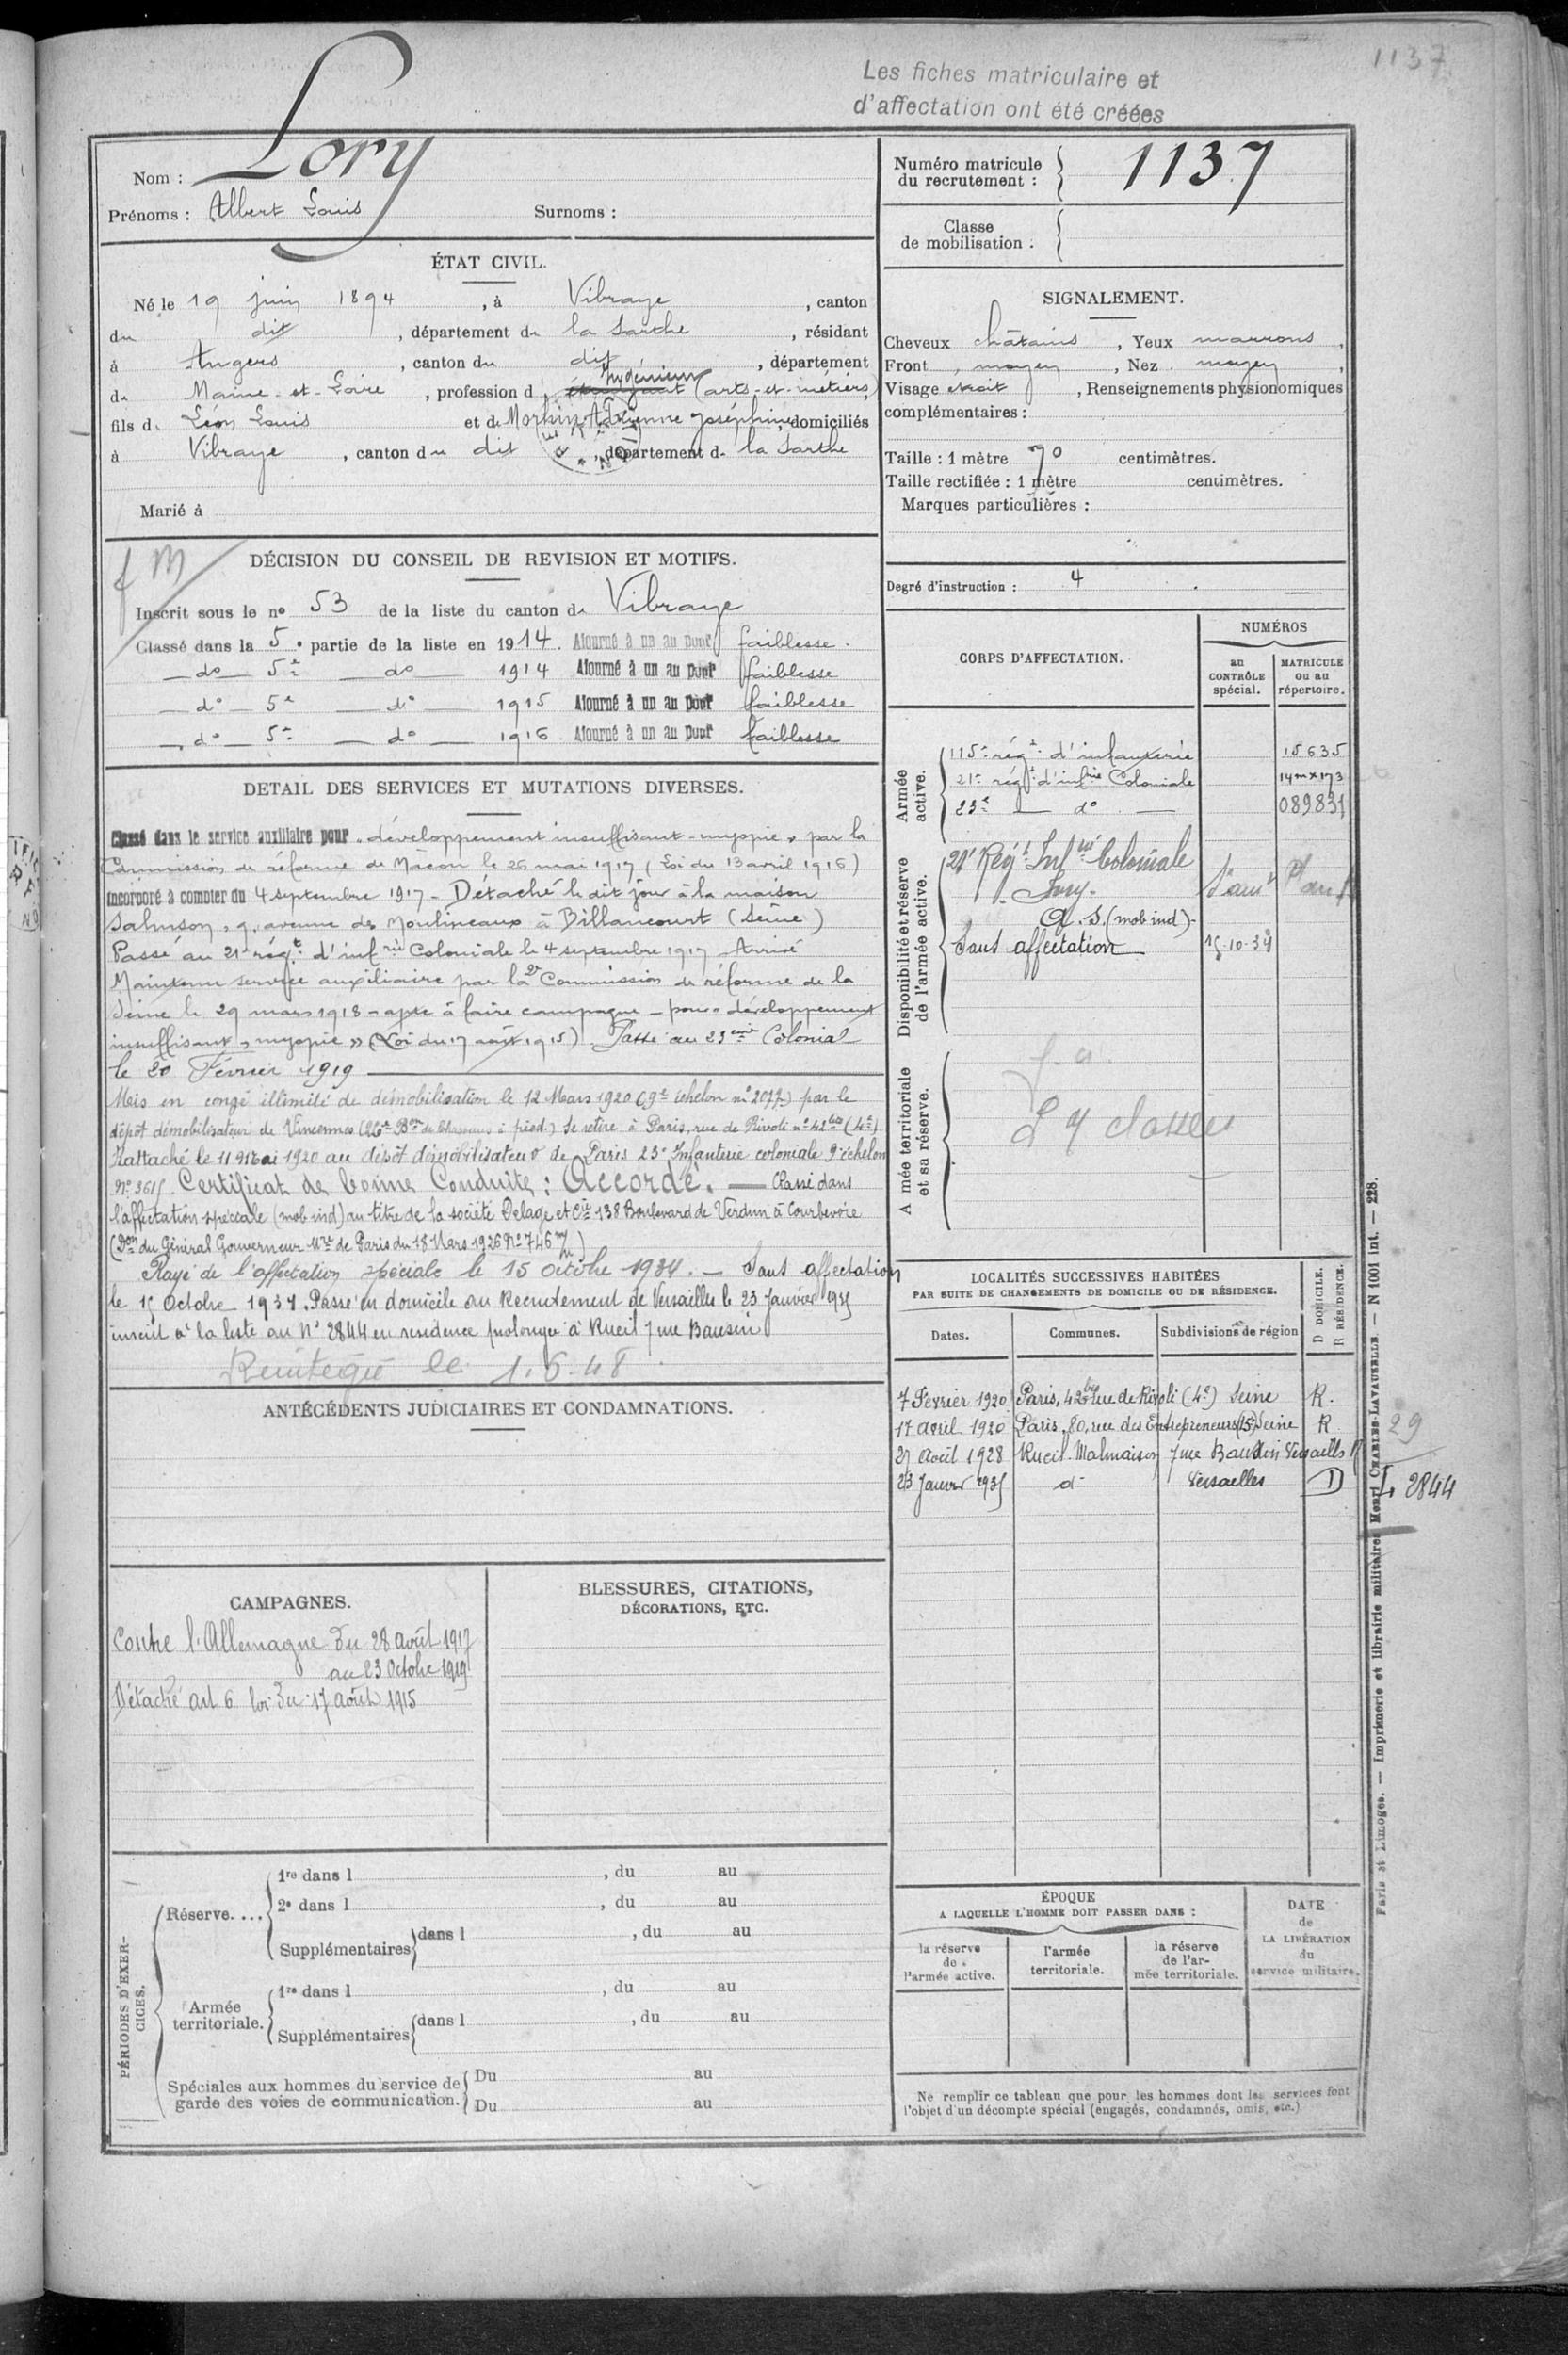 1137
Les fiches matriculaire et
d'affectation ont été créées
Nom : Lory
Prénoms : Albert Louis Surnoms :
Numéro matricule
du recrutement : 1137
Classe
de mobilisation :
ÉTAT CIVIL.
Né le 19 juin 1894, à Vibraye, canton
du dit, département de la Sarthe, résidant
à Angers, canton du dit, département
de Maine-et-Loire, profession d ingénieur (arts-et-métiers)
fils de Léon Louis et de Adrienne Joséphine, domiciliés
à Vibraye, canton du dit, département de la Sarthe
Marié à
SIGNALEMENT.
Cheveux châtains, Yeux marrons,
Front moyen, Nez moyen,
Visage étroit, Renseignements physionomiques
complémentaires :
Taille : 1 mètre 70 centimètres.
Taille rectifiée : 1 mètre centimètres.
Marques particulières :
Degré d'instruction : 4
DÉCISION DU CONSEIL DE REVISION ET MOTIFS.
Inscrit sous le no 53 de la liste du canton de Vibraye
Classé dans la 5e partie de la liste en 1914. Ajourné à un an pour faiblesse.
do 5e do 1914 Ajourné à un an pour faiblesse
do 5e do 1915 Ajourné à un an pour faiblesse
do 5e do 1916 Ajourné à un an pour faiblesse
DETAIL DES SERVICES ET MUTATIONS DIVERSES.
Classé dans le service auxiliaire pour « développement insuffisant - myopie » par la
Commission de réforme de Mâcon le 26 mai 1917 (Loi du 13 avril 1916)
Incorporé à compter du 4 septembre 1917 - Détaché le dit jour à la maison
Salmson, 9, avenue des Moulineaux à Billancourt (Seine)
Passé au 21e régt d'infrie Coloniale le 4 septembre 1917 Arrivé
Maintenu service auxiliaire par la 2e Commission de réforme de la
Seine le 29 mars 1918 - apte à faire campagne - pour « développement
insuffisant, myopie » (Loi du 17 août 1915). Passé au 23eme Colonial
le 20 Février 1919
Mis en congé illimité de démobilisation le 12 Mars 1920 (9e échelon no 2077) par le
dépôt démobilisateur de Vincennes (26e Bon de Chasseurs à pied.) Se retire à Paris, rue de Rivoli no 42 bis (4e)
Rattaché le 11 Mai 1920 au dépôt démobilisateur de Paris 23e Infanterie coloniale 9e échelon
No 3615. Certificat de bonne Conduite : Accordé. — Classé dans
l'affectation spéciale (mob ind) au titre de la société Delage et Cie 138 Boulevard de Verdun à Courbevoie
(Don du Général Gouverneur Mre de Paris du 18 Mars 1926 No 746)
Rayé de l'affectation spéciale le 15 octobre 1934. — Sans affectation
le 15 Octobre 1934. Passé en domicile au Recrutement de Versailles le 23 Janvier 1935
inscrit à la liste au No 2844 en résidence prolongée à Rueil 7 rue
Réintégré le 1.6.48
CORPS D'AFFECTATION.
NUMÉROS
au CONTRÔLE spécial.
MATRICULE ou au répertoire.
Armée active.
115e régt d'infanterie 15635
21e régt d'infrie Coloniale 14m x 173
23e do 089831
Disponibilité et réserve de l'armée active.
21e Régt Infrie Coloniale
A.S. (mob ind)
Sans affectation 15-10-34
Armée territoriale et sa réserve.
classes
ANTÉCÉDENTS JUDICIAIRES ET CONDAMNATIONS.
LOCALITÉS SUCCESSIVES HABITÉES
PAR SUITE DE CHANGEMENTS DE DOMICILE OU DE RÉSIDENCE.
D DOMICILE.
R RÉSIDENCE.
Dates. Communes. Subdivisions de région
7 Février 1920 Paris, 42 bis rue de Rivoli (4e) Seine R.
17 avril 1920 Paris, 80, rue des Entrepreneurs (15e) Seine R
27 Août 1928 Rueil-Malmaison 7 rue Versailles R
23 Janvier 1935 do Versailles D
29
2844
CAMPAGNES.
Contre l'Allemagne du 28 août 1917
au 23 Octobre 1919
Détaché art 6 loi du 17 août 1915
BLESSURES, CITATIONS,
DÉCORATIONS, ETC.
PÉRIODES D'EXERCICES.
Réserve....
1re dans l , du au
2e dans l , du au
Supplémentaires dans l , du au
Armée territoriale.
1re dans l , du au
Supplémentaires dans l , du au
Spéciales aux hommes du service de
garde des voies de communication.
Du au
Du au
ÉPOQUE
A LAQUELLE L'HOMME DOIT PASSER DANS :
la réserve de l'armée active.
l'armée territoriale.
la réserve de l'armée territoriale.
DATE de LA LIBÉRATION du service militaire.
Ne remplir ce tableau que pour les hommes dont les services font
l'objet d'un décompte spécial (engagés, condamnés, omis, etc.)
Paris et Limoges. — Imprimerie et librairie militaires Henri CHARLES-LAVAUZELLE. — N 1001 int. — 228.